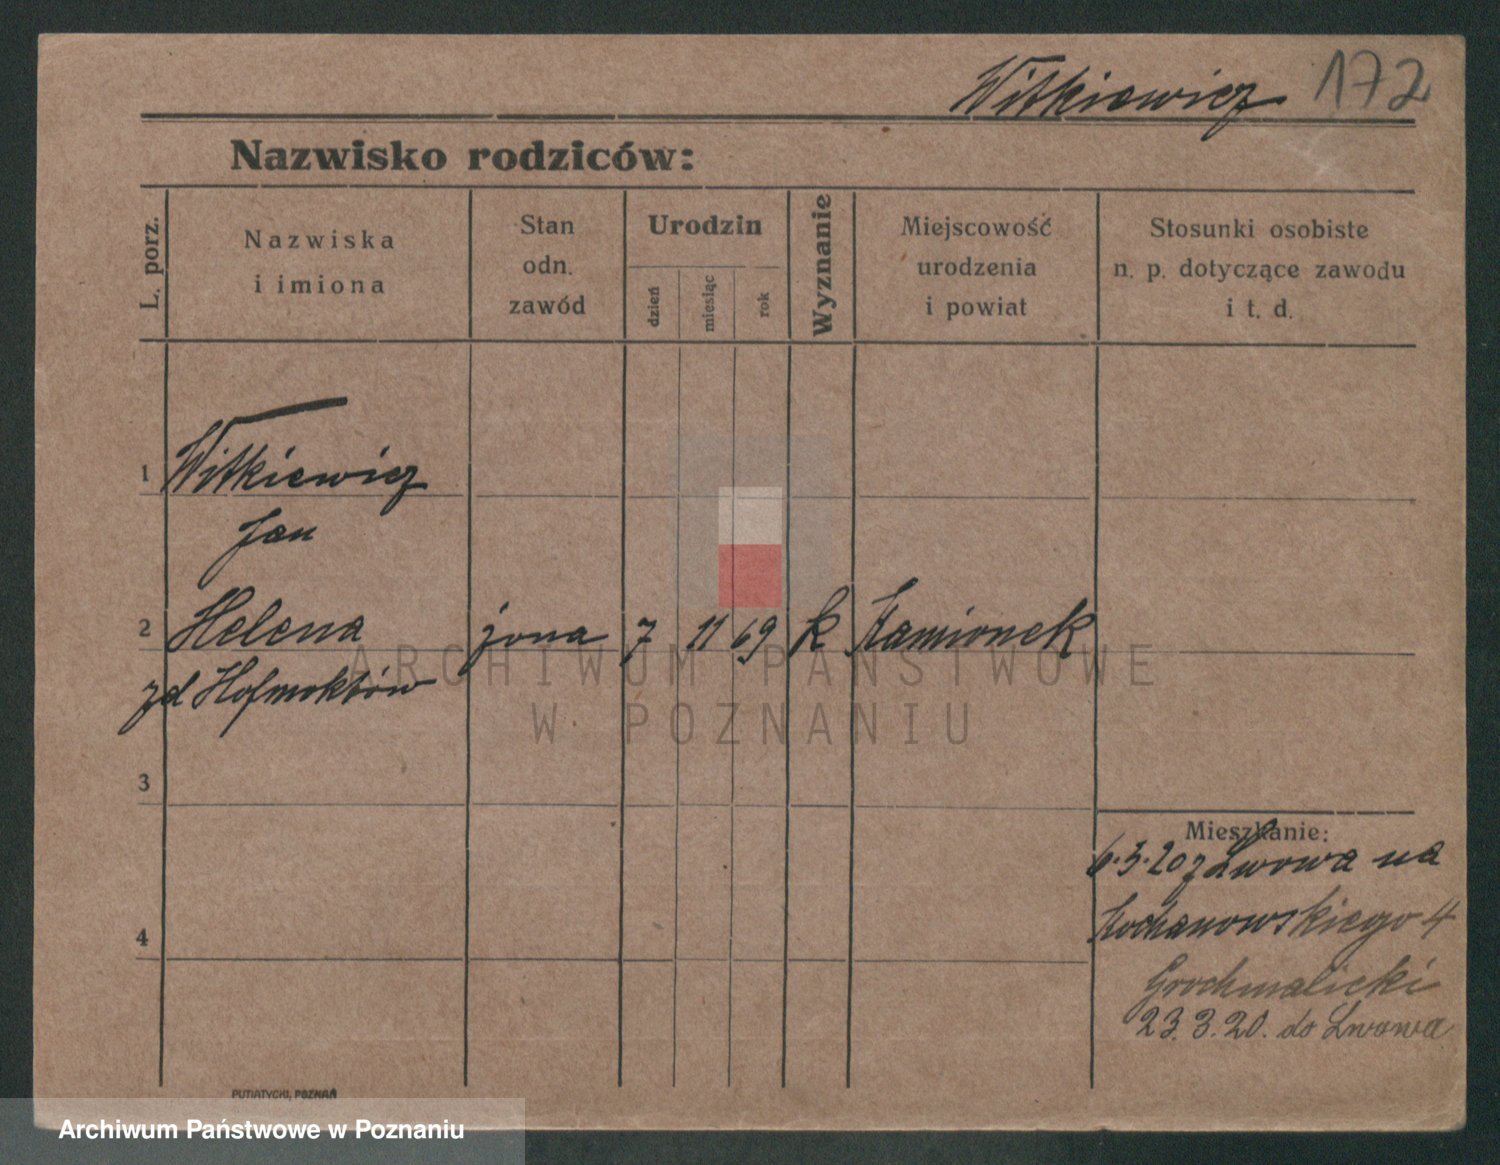 Witkiewicz 172
Nazwisko rodziców:
L. porz.
Nazwiska
i imiona
Stan
odn.
zawód
Urodzin
dzień
miesiąc
rok
Wyznanie
Miejscowość
urodzenia
i powiat
Stosunki osobiste
n. p. dotyczące zawodu
i t. d.
1 Witkiewicz
Jan
2 Helena żona 7 11 69 k Kamionek
zd Hofmoktów
3
4
Mieszkanie:
6.3.20 z Lwowa na
Kochanowskiego 4
Grochmalicki
23.3.20. do Lwowa
PUTIATYCKI, POZNAŃ
ARCHIWUM PAŃSTWOWE
W POZNANIU
Archiwum Państwowe w Poznaniu